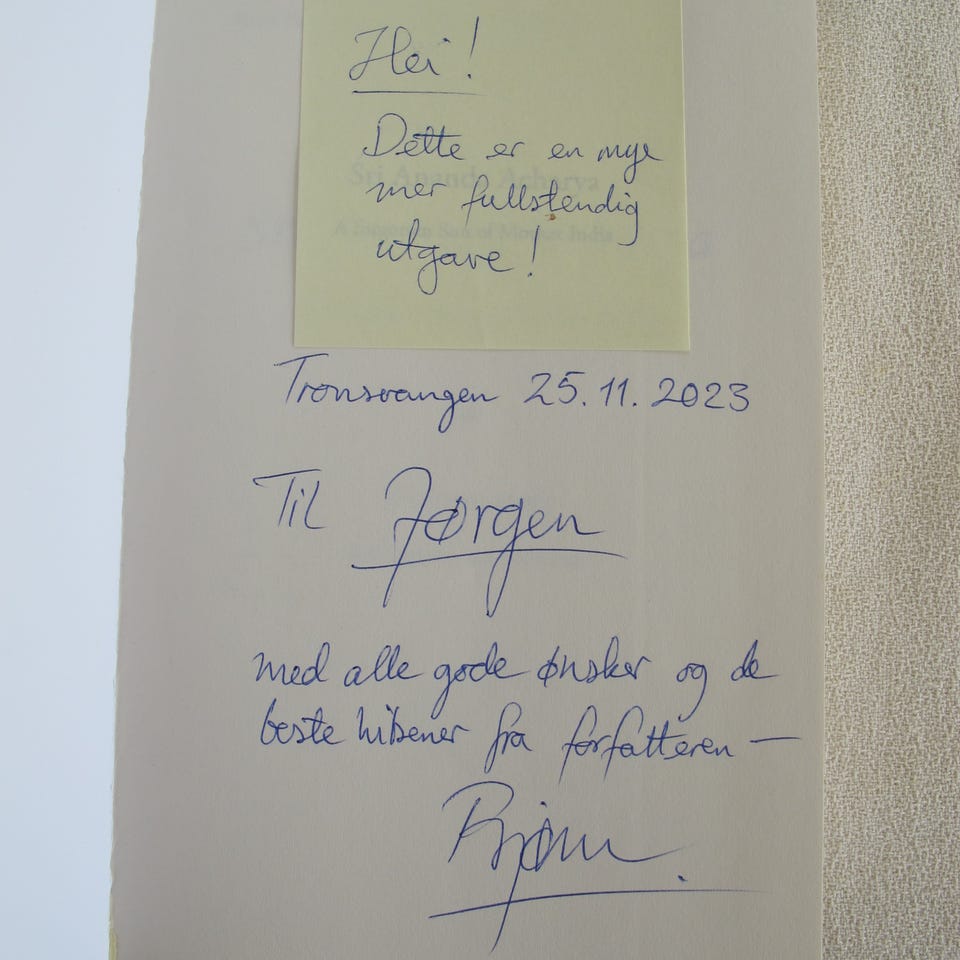 Hei!
Dette er en mye
mer fullstendig
utgave!
Sri Ananda Acharya
A Forgotten Son of Modern India
Tronsvangen 25.11.2023
Til Jørgen
med alle gode ønsker og de
beste hilsener fra forfatteren —
Bjørn.